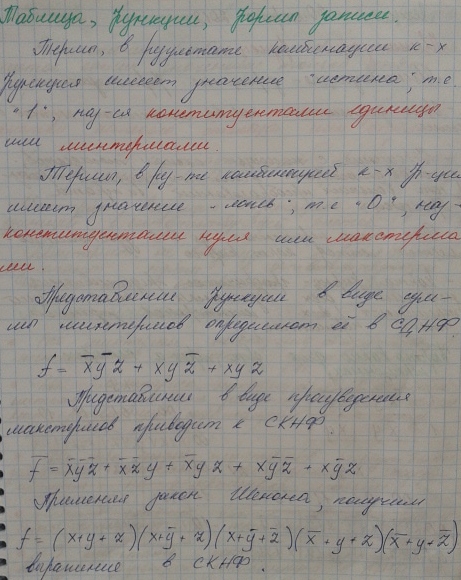 Таблица, функции, формы записи.
Термы, в результате комбинации к-х
функция имеет значение "истина", т.е.
"1", наз-ся конституентами единицы
или минтермами.
Термы, в ре-те комбинацией к-х ф-ция
имеет значение "ложь", т.е "0", наз-
конституентами нуля или макстерма
ми.
Представление функции в виде сум-
мы минтермов определяют её в СДНФ.
f = x̅y̅z + xyz̅ + xyz
Представление в виде произведения
макстермов приводит к СКНФ.
f̅ = x̅y̅z̅ + x̅z̅y + x̅yz + xy̅z̅ + xy̅z
Применяя закон Шенона, получим
f = (x+y+z)(x+y̅+z)(x+y̅+z̅)(x̅+y+z)(x̅+y+z̅)
выражение в СКНФ.